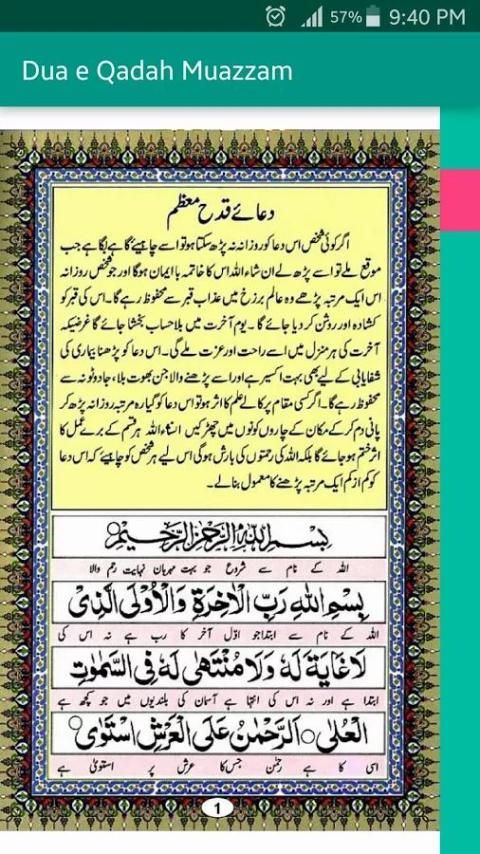 57% 9:40 PM
Dua e Qadah Muazzam
دعائے قدح معظم
اگر کوئی شخص اس دعا کو روزانہ نہ پڑھ سکتا ہو تو اسے چاہیئے گاہے بگاہے جب
موقع ملے تو اسے پڑھ لے ان شاء اللہ اس کا خاتمہ با ایمان ہوگا اور جو شخص روزانہ
اس ایک مرتبہ پڑھے وہ عالم برزخ میں عذاب قبر سے محفوظ رہے گا۔ اس کی قبر کو
کشادہ اور روشن کر دیا جائے گا ۔ یوم آخرت میں بلا حساب بخشا جائے گا غرضیکہ
آخرت کی ہر منزل میں اسے راحت اور عزت ملے گی۔ اس دعا کو پڑھنا بیماری کی
شفایابی کے لیے بھی بہت اکسیر ہے اور اسے پڑھنے والا جن بھوت بلاء، جادو ٹونہ سے
محفوظ رہے گا۔ اگر کسی مقام پر کالے علم کا اثر ہو تو اس دعا کو گیارہ مرتبہ روزانہ پڑھ کر
پانی دم کر کے مکان کے چاروں کونوں میں چھڑکیں انشاء اللہ ہر قسم کے برے عمل کا
اثر ختم ہو جائے گا بلکہ اللہ کی رحمتوں کی بارش ہوگی اس لیے ہر شخص کو چاہیئے کہ اس دعا
کو کم از کم ایک مرتبہ پڑھنے کا معمول بنالے۔
بِسْمِ اللّٰهِ الرَّحْمٰنِ الرَّحِيْمِ
اللہ کے نام سے شروع جو بہت مہربان نہایت رحم والا
بِسْمِ اللّٰهِ رَبِّ الْاٰخِرَةِ وَالْاُوْلٰى الَّذِىْ
اللہ کے نام سے ابتدا جو اوّل آخر کا رب ہے نہ اس کی
لَا غَايَةَ لَهٗ وَلَا مُنْتَهٰى لَهٗ فِى السَّمٰوٰتِ
ابتدا ہے اور نہ اس کی انتہا ہے آسمان کی بلندیوں میں جو کچھ ہے
الْعُلٰى ○ اَلرَّحْمٰنُ عَلَى الْعَرْشِ اسْتَوٰى ○
اسی کا ہے رحمٰن جس کا عرش پر استویٰ ہے
1